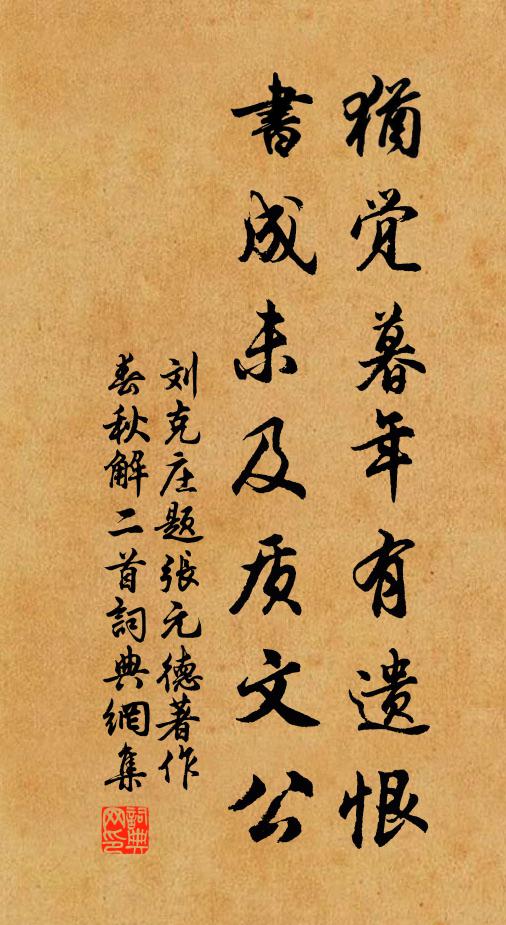 猶觉暮年有遗恨
書成未及质文公
刘克庄题張元德著作
春秋解二首詞典網集
詞典网印